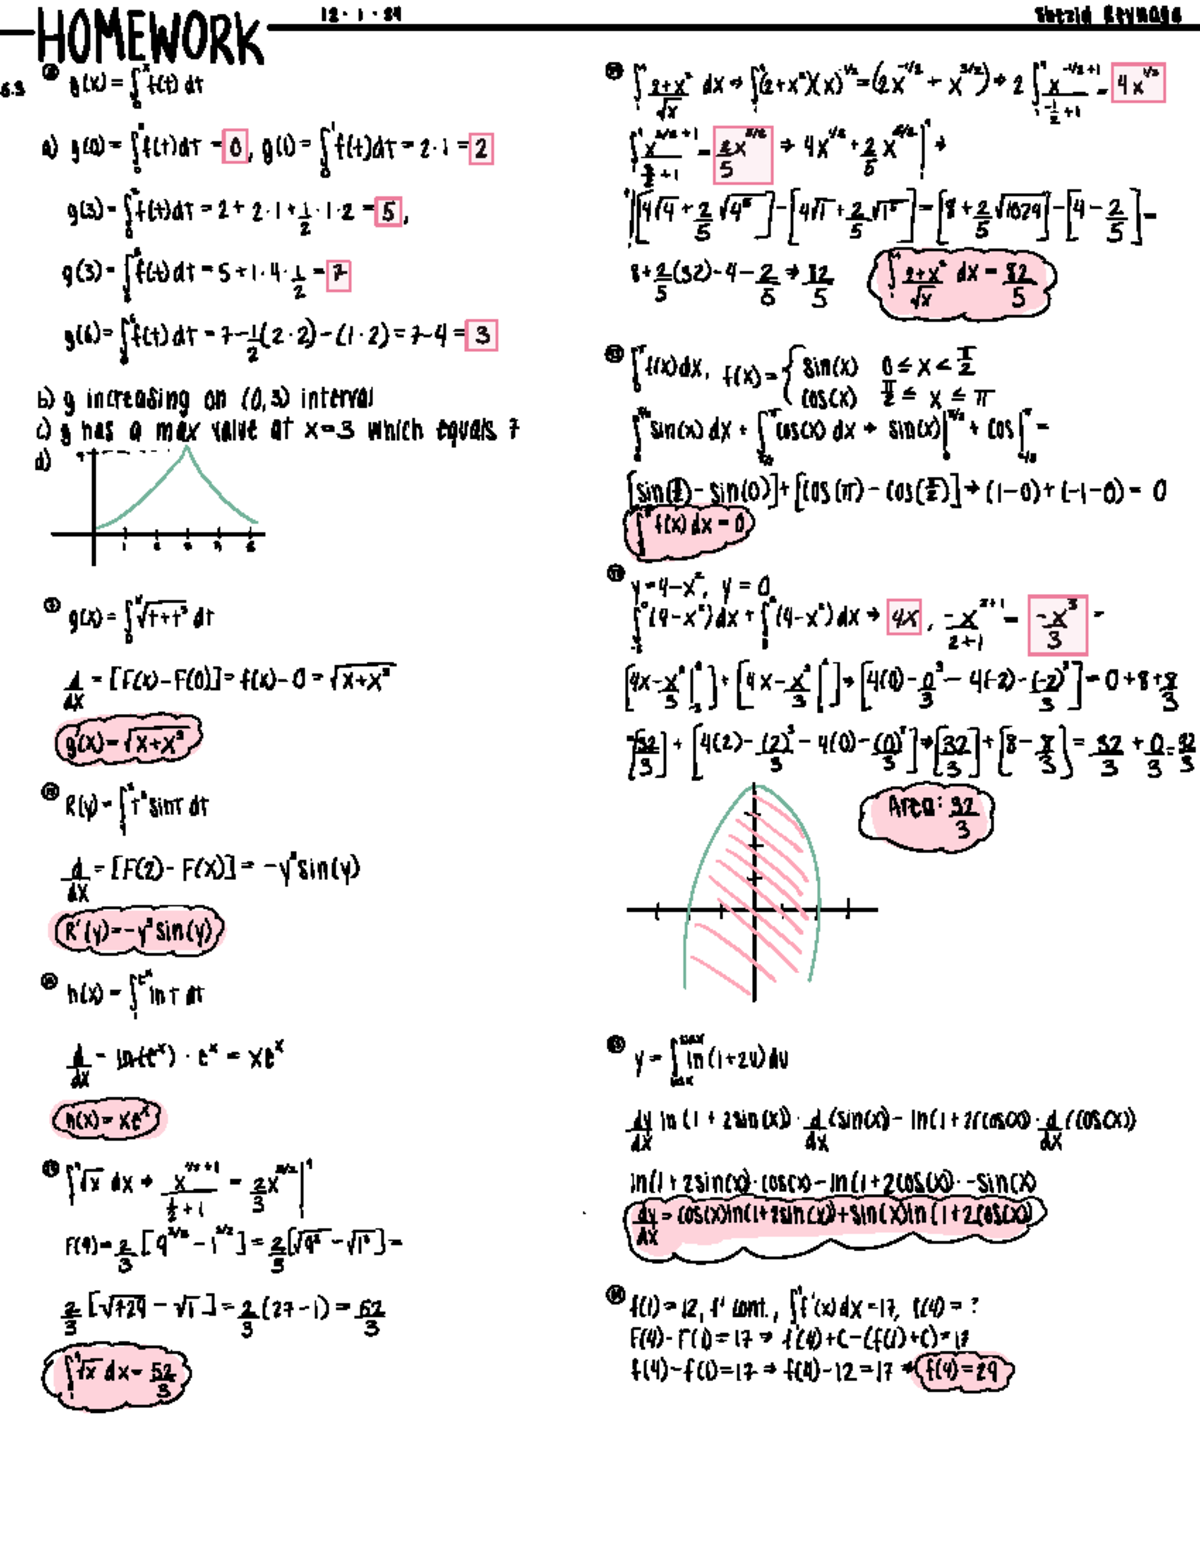 HOMEWORK
12 · 1 · 24
5.3
g(x) = ∫ f(t) dt
a) g(0) = ∫ f(t) dt = 0, g(1) = ∫ f(t) dt = 2 · 1 = 2
∫ f(t) dt = 2 + 2 · 1 + 1/2 · 1 · 2 = 5,
g(3) = ∫ f(t) dt = 5 + 1 · 4 · 1/2 = 7
g(6) = ∫ f(t) dt = 7 - 1/2(2 · 2) - (1 · 2) = 7 - 4 = 3
b) g increasing on (0, 3) interval
c) g has a max value at x = 3 which equals 7
d)
g(x) = ∫ √t + t³ dt
d/dx = [F(x) - F(0)] = f(x) - 0 = √x + x³
g'(x) = √x + x³
R(y) = ∫ t³ sin t dt
d/dx = [F(2) - F(x)] = -y³ sin(y)
R'(y) = -y³ sin(y)
h(x) = ∫ ln t dt
d/dx = ln(eˣ) · eˣ = xeˣ
h(x) = xeˣ
∫ √x dx → x^(1/2 + 1) / (1/2 + 1) = 2/3 x^(3/2) |
F(9) = 2/3 [9^(3/2) - 1^(3/2)] = 2/3 [√9³ - √1³] =
2/3 [√729 - √1] = 2/3 (27 - 1) = 52/3
∫ √x dx = 52/3
∫ (2 + x²)/√x dx → ∫ (2 + x²)(x)^(-1/2) = (2x^(-1/2) + x^(3/2)) → 2 ∫ x^(-1/2 + 1) / (-1/2 + 1) = 4x^(1/2)
∫ x^(3/2 + 1) / (3/2 + 1) = 2x^(5/2) / 5 → 4x^(1/2) + 2/5 x^(5/2) | →
[4√4 + 2/5 √4⁵] - [4√1 + 2/5 √1⁵] = [8 + 2/5 √1024] - [4 - 2/5] =
8 + 2/5 (32) - 4 - 2/5 → 82/5
∫ (2 + x²)/√x dx = 82/5
∫ f(x) dx, f(x) = { sin(x) 0 ≤ x < π/2
cos(x) π/2 ≤ x ≤ π
∫ sin(x) dx + ∫ cos(x) dx → sin(x) | + cos | =
[sin(π/2) - sin(0)] + [cos(π) - cos(π/2)] → (1 - 0) + (-1 - 0) = 0
∫ f(x) dx = 0
y = 4 - x², y = 0
∫ (4 - x²) dx + ∫ (4 - x²) dx → 4x, -x^(2 + 1) / (2 + 1) = -x³/3 =
[4x - x³/3 |] + [4x - x³/3 |] → [4(0) - 0³/3 - 4(-2) - (-2)³/3] = 0 + 8 + 8/3
= [32/3] + [4(2) - (2)³/3 - 4(0) - (0)³/3] → [32/3] + [8 - 8/3] = 32/3 + 0/3 = 32/3
Area: 32/3
y = ∫ ln(1 + 2u) du
dy/dx ln(1 + 2sin(x)) · d/dx (sin(x)) - ln(1 + 2(cos(x)) · d/dx (cos(x))
ln(1 + 2sin(x)) · cos(x) - ln(1 + 2cos(x)) · -sin(x)
dy/dx = cos(x)ln(1 + 2sin(x)) + sin(x)ln(1 + 2cos(x))
f(1) = 12, f' cont., ∫ f'(x) dx = 17, f(4) = ?
F(4) - F(1) = 17 → f(4) + C - (f(1) + C) = 17
f(4) - f(1) = 17 → f(4) - 12 = 17 → f(4) = 29